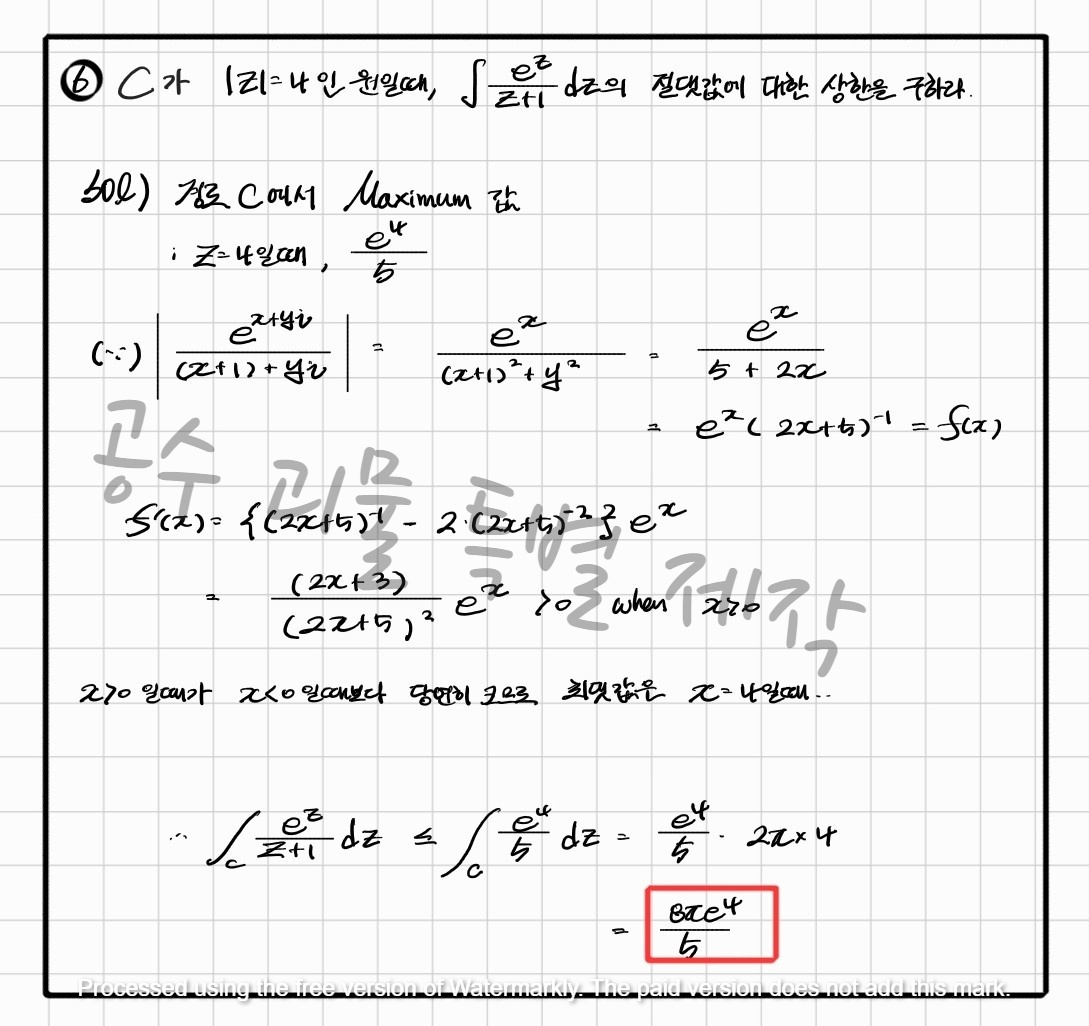 ⑥ C가 |z|=4인 원일때, ∫ e^z/(z+1) dz의 절댓값에 대한 상한을 구하라.
sol) 경로 C에서 Maximum 값
; z=4일때, e^4/5
(∵) |e^(x+yi)/((x+1)+yi)| = e^x/((x+1)^2+y^2) = e^x/(5+2x)
= e^x(2x+5)^-1 = f(x)
공수 괴물 특별 제작
f'(x) = {(2x+5)^-1 - 2·(2x+5)^-2} e^x
= (2x+3)/(2x+5)^2 e^x >0 when x>0
x>0일때가 x<0일때보다 당연히 크므로 최댓값은 x=4일때..
∴ ∫_C e^z/(z+1) dz ≤ ∫_C e^4/5 dz = e^4/5 · 2π×4
= 8πe^4/5
Processed using the free version of Watermarkly. The paid version does not add this mark.